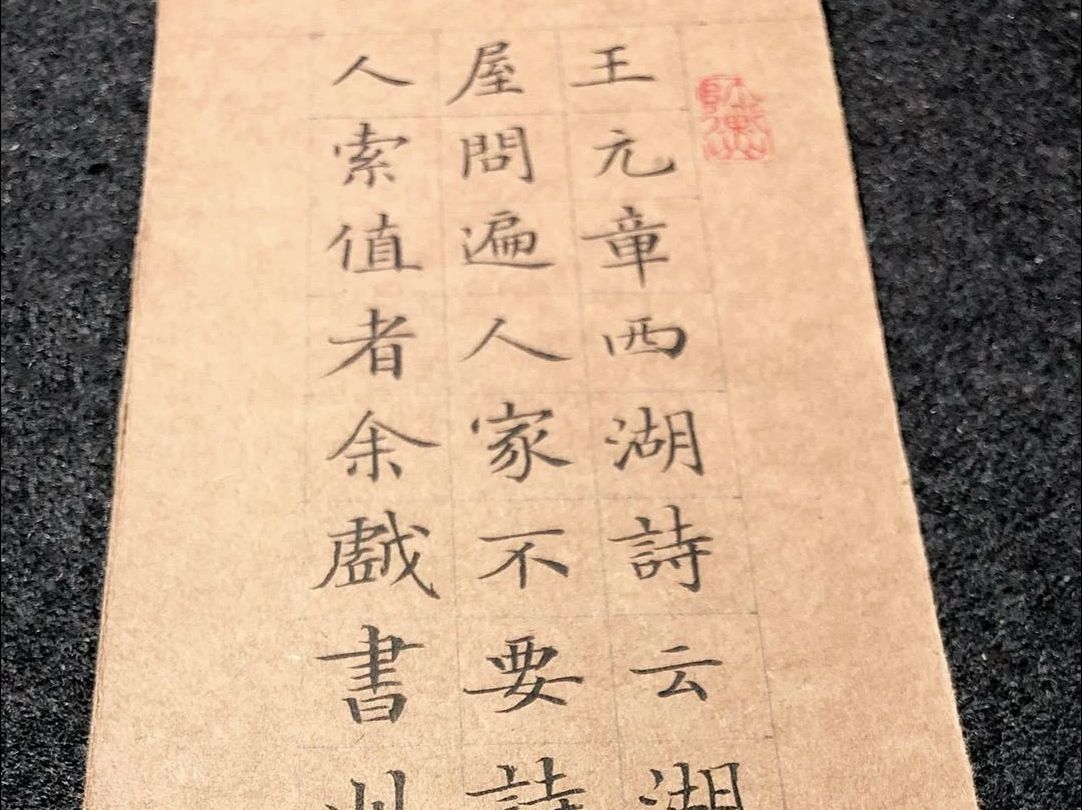 王元章西湖詩云湖
屋問遍人家不要詩
人索值者余戲書